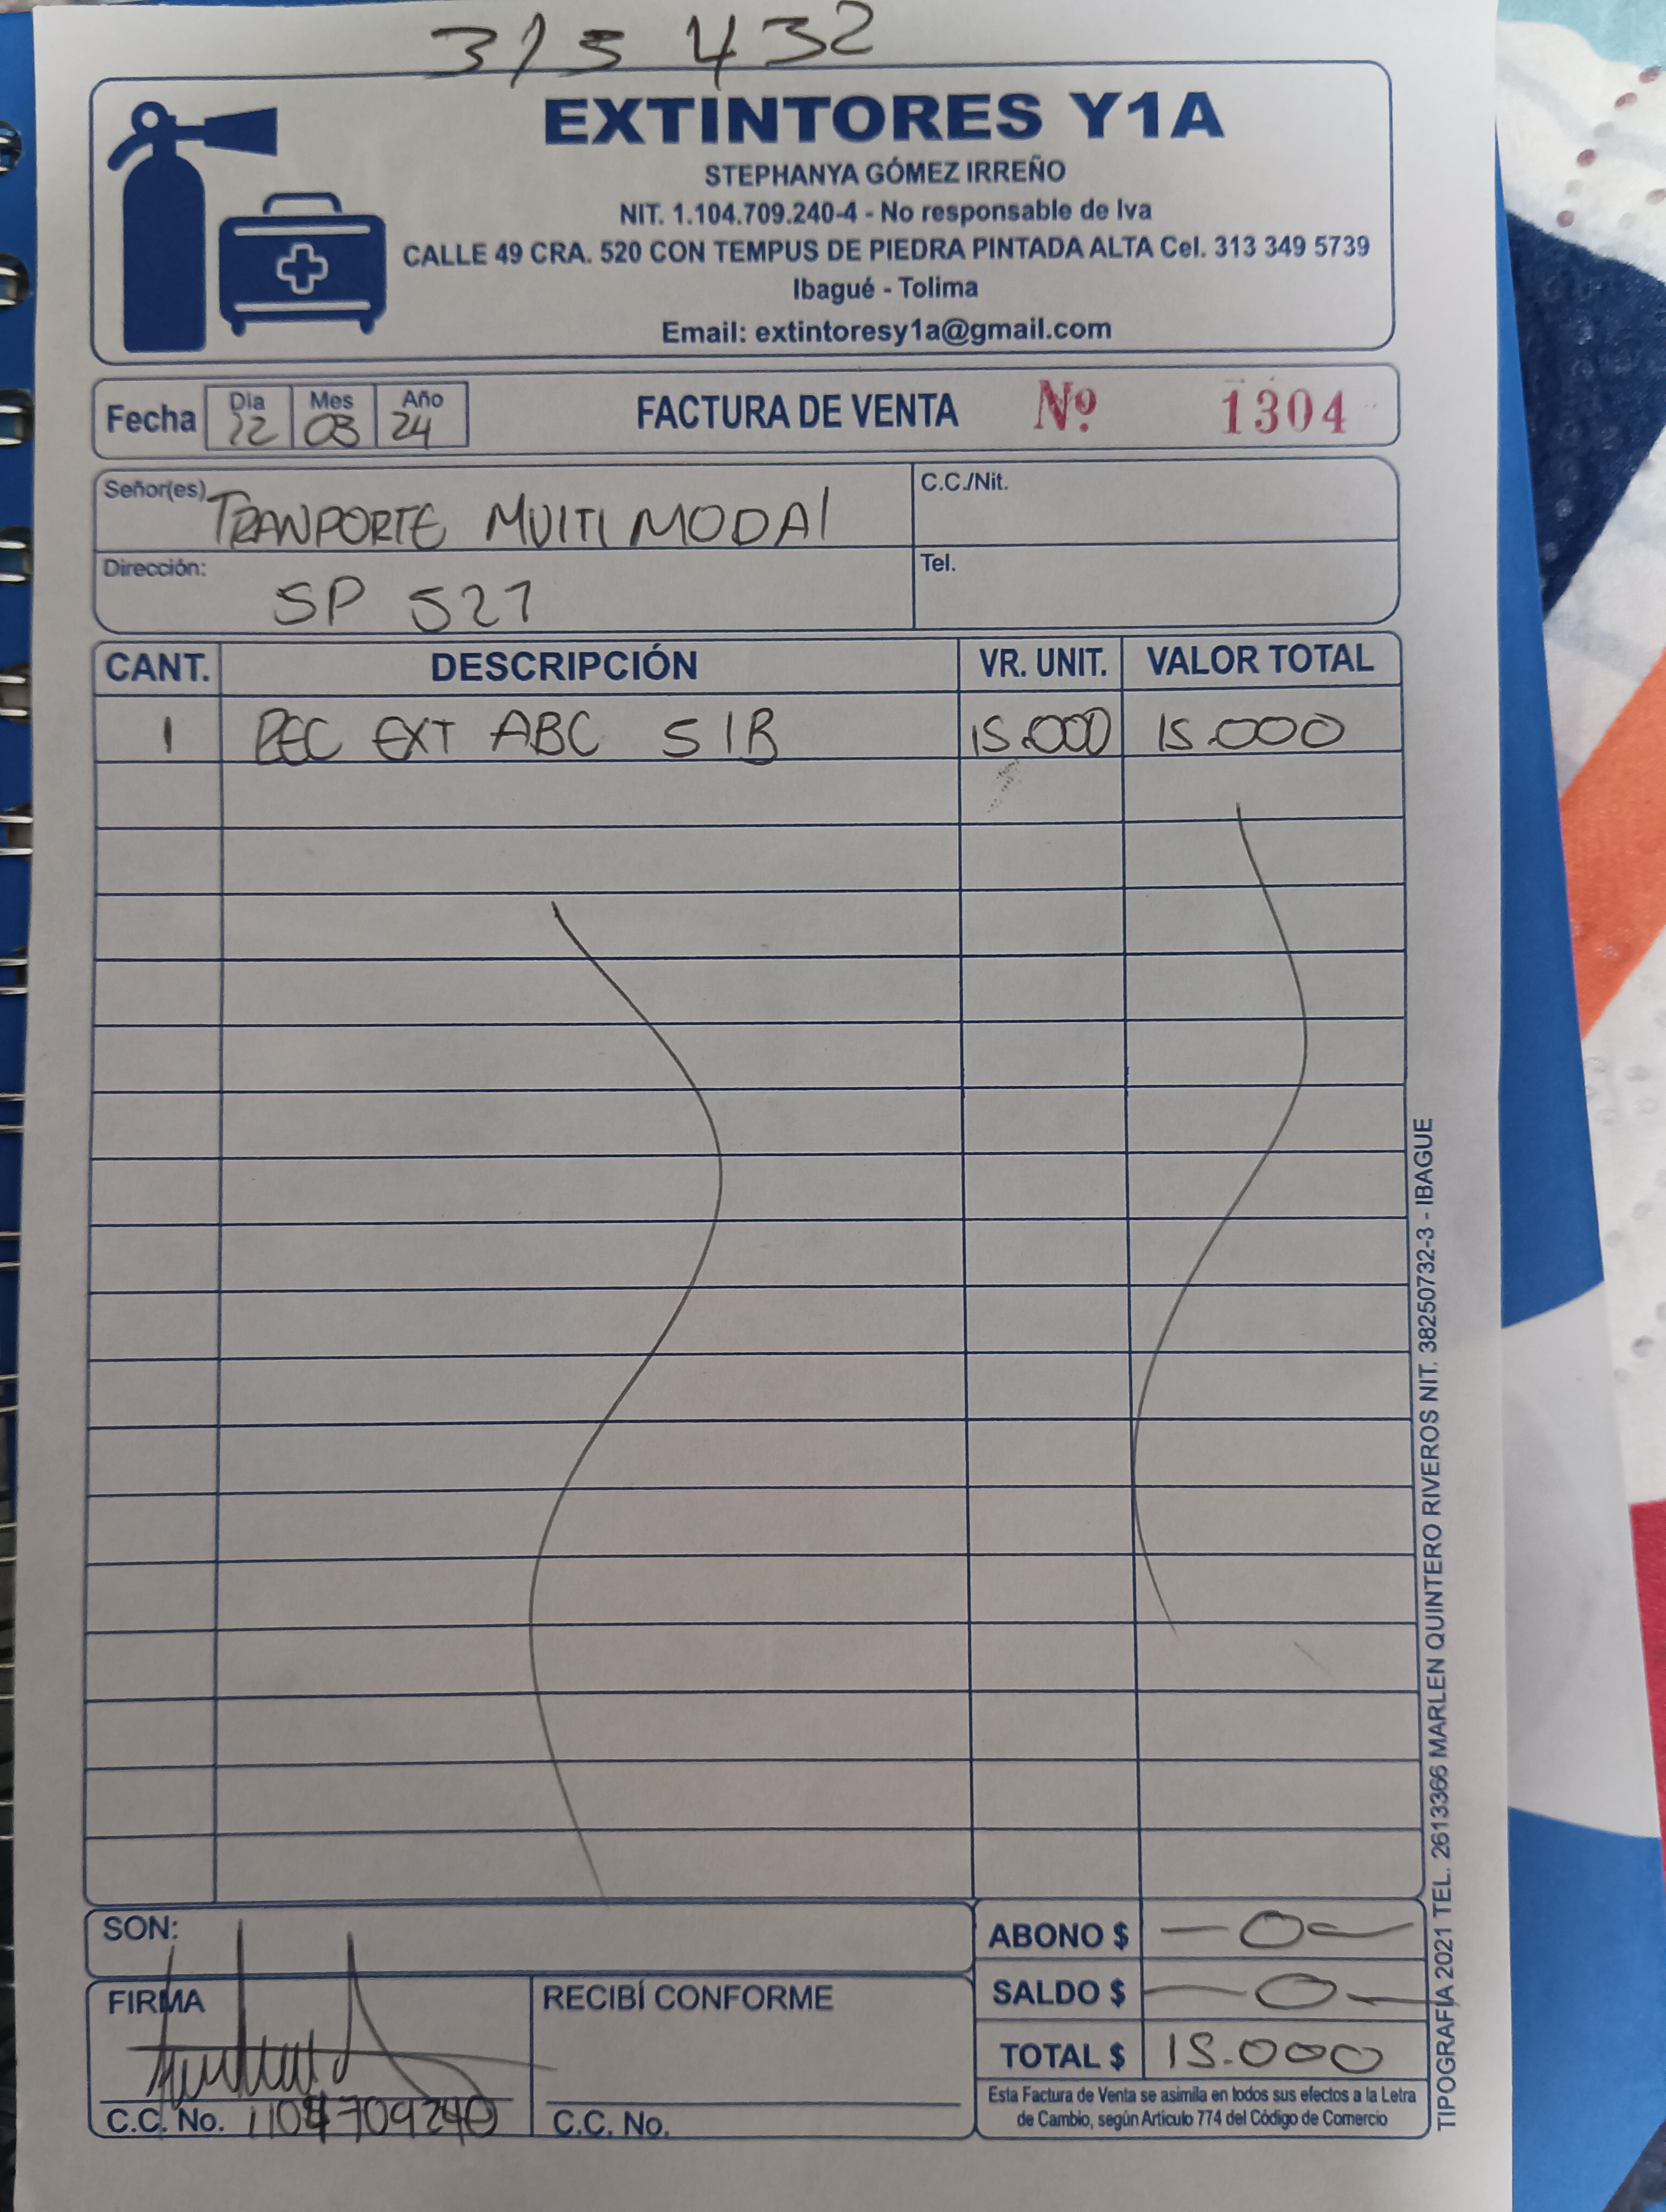 315 432
EXTINTORES Y1A
STEPHANYA GÓMEZ IRREÑO
NIT. 1.104.709.240-4 - No responsable de Iva
CALLE 49 CRA. 520 CON TEMPUS DE PIEDRA PINTADA ALTA Cel. 313 349 5739
Ibagué - Tolima
Email: extintoresy1a@gmail.com
Fecha Dia 12 Mes 03 Año 24 FACTURA DE VENTA Nº 1304
Señor(es) TRANPORTE MUlTI MODAl C.C./Nit.
Dirección: SP 521 Tel.
CANT. DESCRIPCIÓN VR. UNIT. VALOR TOTAL
1 REC EXT ABC 5 lB 15.000 15.000
SON:
ABONO $ —0—
SALDO $ —0—
TOTAL $ 15.000
FIRMA
RECIBÍ CONFORME
C.C. No. 1104709240
C.C. No.
Esta Factura de Venta se asimila en todos sus efectos a la Letra
de Cambio, según Articulo 774 del Código de Comercio
TIPOGRAFÍA 2021 TEL. 2613366 MARLEN QUINTERO RIVEROS NIT. 38250732-3 - IBAGUE